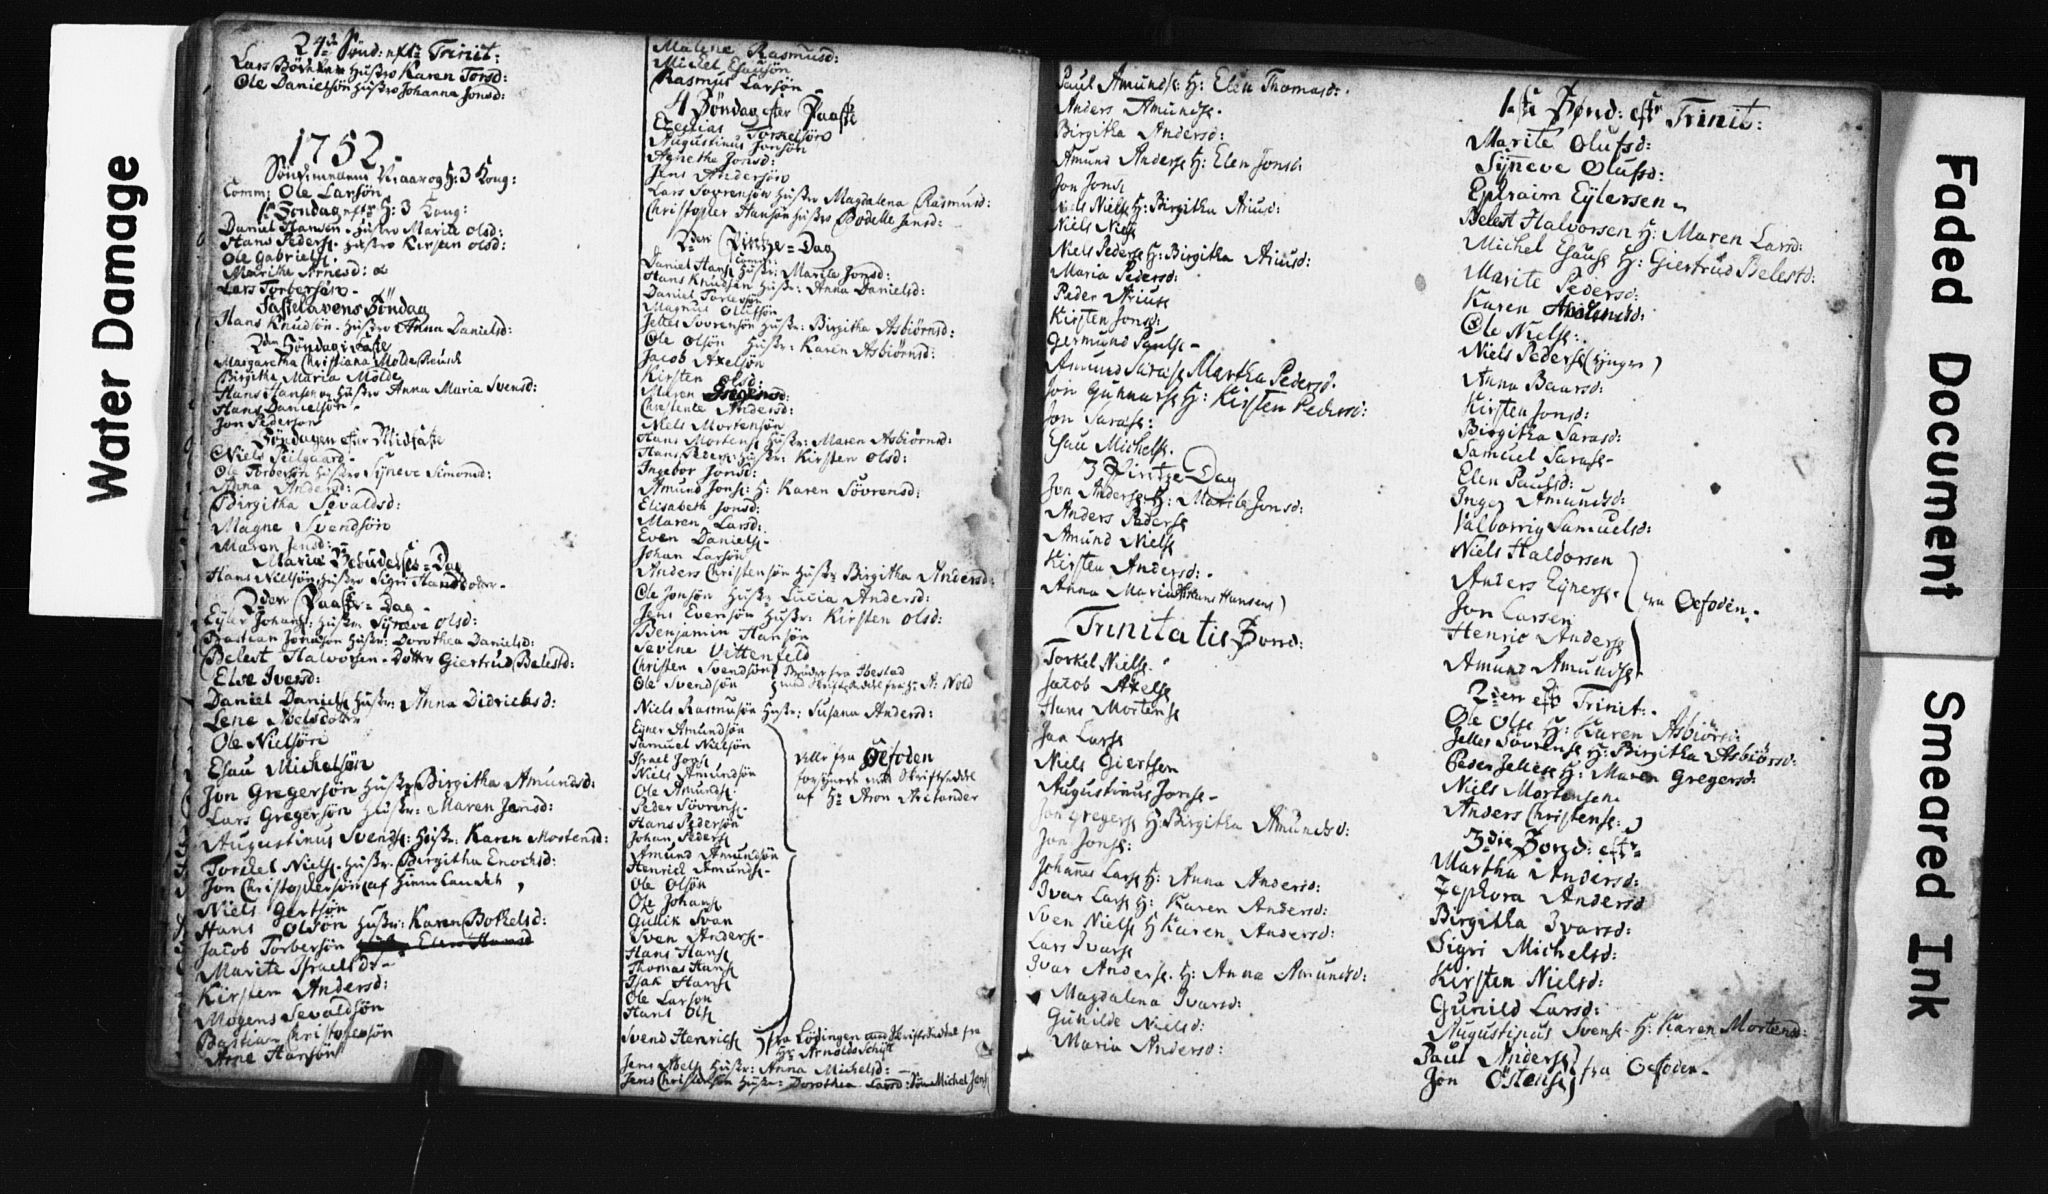 Water Damage
24de Sønd: efter Trinit:
Lars Hustro Karen Torsd:
Ole Danielsøn Hustro Johanna Jonsd:
1752.
Sønd. imellem Nÿaar og H: 3 Kong:
Comm: Ole Larsøn
1ste Søndag efter H: 3 Kong:
Daniel Hansen. Hustro Marite Olsd:
Hans Peders. Hustro Kirsten Olsd:
Ole Gabriels.
Marithe Arnesd:
Lars Torbersøn.
Fastelavens Søndag
Hans Knudsøn. Hustro Anna Danielsd:
2den Søndag i Faste
Margaretha Christiana Molde
Birgitha Maria Molde
Hans Hansen og Hustro Anna Maria Svensd:
Hans Danielsøn.
Jon Pedersøn
Søndagen efter Midfaste
Niels
Ole Torbersøn Hustro Sÿneve Simonsd:
Anna Andersd:
Birgitha Sevaldsd:
Magne Svendsøn
Maren Jensd:
Mariæ Bebudelses-Dag
Hans Nielsøn Hustro Sigri Hansdotter.
2den Paaske-Dag.
Eyler Johans: Hustr: Sÿneve Olsd:
Bastian Hustr: Dorothea Danielsd:
Belest Halvorsen. Dotter Giertrud Belestd:
Else Iversd:
Daniel Daniels Hustr: Anna Didrichsd:
Lene
Ole Nielsøn
Esau Michelsøn
Jon Gregersøn Hustr Birgitha Amundsd:
Lars Gregersøn Hustr: Maren Jensd:
Augustinus Svends. Hustr. Karen Mortensd:
Torkel Niels. Hustr. Birgitha Enochsd:
Jon Christophersøn af
Niels Gertsøn
Hans Olsøn Hustr: Karen Botkelsd:
Jacob Torbersøn
Marite Israelsdr.
Kirsten Andersd:
Mogens Sevaldsøn
Bastian Christophersøn
Arne Hansøn
Malene Rasmusd:
Michel Esausøn
Rasmus Larsøn
4 Søndag efter Paaske
Ezechias Torkelsøn
Augustinus Jonsøn
Agnetha Jonsd:
Jens Andersøn
Lars Sovrensøn Hustro Magdalena Rasmusd:
Christopher Hansøn Hustro Bodelle Jensd:
2den Pintze-Dag
Comm:
Daniel Hans Hustr: Marite Jonsd:
Hans Knudsøn Hustr: Anna Danielsd:
Daniel Torbersøn
Magnus Olufsøn
Jelles Sovrensøn Hustr: Birgitha Asbiørnsd:
Ole Olsøn Hustr: Karen Asbiørnsd:
Jacob Axelsøn
Kirsten Olsd:
Maren
Christente Andersd:
Niels Mortensøn
Hans Mortens Hustr: Maren Asbiørnsd:
Hans Peders. Hustr: Kirsten Olsd:
Ingebor Jonsd:
Amund Jons: H: Karen Sövrensd:
Elisabeth Jonsd:
Maren Larsd:
Even Daniels.
Johan Larsøn
Anders Christensøn Hustr Birgitha Andersd:
Ole Jonsøn Hustr Lucia Andersd:
Jens Evensøn Hustr: Kirsten Olsd:
Benjamin Hansøn
Sevine Vittenfeld
Christen Svendsøn
Ole Svendsøn
Brüder fra Ibestad
med Skriftseddel fra Hr A: Nold
Niels Rasmusøn Hustr: Susana Andersd:
Eÿner Amundsøn
Samuel Nielsøn
Israel Jons
Niels Amundsøn
Ole Amunds.
Peder Sövrens.
Hans Pedersøn
Johan Peders
Amund Amundsøn
Henrick Amunds.
Ole Olsøn
Ole Johans
Gullik Svan
Sven Anders.
Hans Hans
Thomas Hans
Isak Hans
Ole Larson
Hans Ols
Alle fra Oefoden
forsynede med Skriftseddel
af Hr Aron Arctander
Svend Henrich fra Lödingen med Skriftseddel fra
Hr Arnoldo Schÿt
Jens Niels Hustr: Anna Michelsd:
Jens Christensøn Hustr: Dorothea Larsd: Søn Michel Jens
Paul Amunds: H: Elen Thomasd:
Anders Amunds.
Birgitha Andersd:
Amund Anders H: Elen Jonsd:
Jon Jons
Niels Niels H: Birgitha Ariusd:
Niels Niels
Niels Peders H: Birgitha Ariusd:
Maria Pedersd:
Peder Arius
Kirsten Jonsd:
Germund Pauls.
Amund Saras Martha Pedersd.
Jon Gunnars H: Kirsten Pedersd:
Jon Saras:
Esau Michels.
3 Pintze Dag
Jon Anders H: Marite Jonsd:
Anders Peders
Amund Niels
Kirsten Andersd:.
Anna Maria (Hans Hansens)
Trinitatis Sönd:
Torkel Niels.
Jacob Axels
Hans Mortens
Jon Lars
Niels Giertsen
Augustinus Jons.
Jon Gregers H: Birgitha Amundsd:
Jon Jons:
Johannes Lars H: Anna Andersd:
Ivar Lars H: Karen Andersd:
Sven Niels H Karen Andersd:
Lars Ivars
Ivar Anders. H: Anna Amundsd:
Magdalena Ivarsd:
Gunilde Nielsd:
Maria Andersd:
1ste Sønd: eftr Trinit:
Marite Olufsd:
Sÿneve Olufsd:
Ephraim Eÿlersen
Belest Halvorsen H: Maren Larsd:
Michel Esaus H: Giertrud Belestd:
Marite Pedersd:
Karen
Ole Niels:
Niels Peders
Anna Baarsd:
Kirsten Jonsd:
Birgitha Sarasd:
Samuel Saras.
Elen Paulsd:
Inger Amundsd:
Valborrig Samuelsd:
Niels Haldorsen
Anders Eÿners.
Jon Larsen
Henric Anders
Amund Amunds.
fra Oefoden.
2den eftr Trinit.
Ole Ols H: Karen Asbiörsd:
Jelles Sövrens H: Birgitha Asbiörsd:
Peder Jelles H: Maren Gregersd:
Niels Mortensen
Anders Christens:
3die Sønd: eftr
Martha Andersd:
Zephora Andersd
Birgitha Ivarsd:
Sigri Michelsd:
Kirsten Nielsd:
Gunild Larsd:
Augustinus Svens. H: Karen Mortensd:
Paul Anders
Jon Östens
fra Oefoden.
Faded Document
Smeared Ink